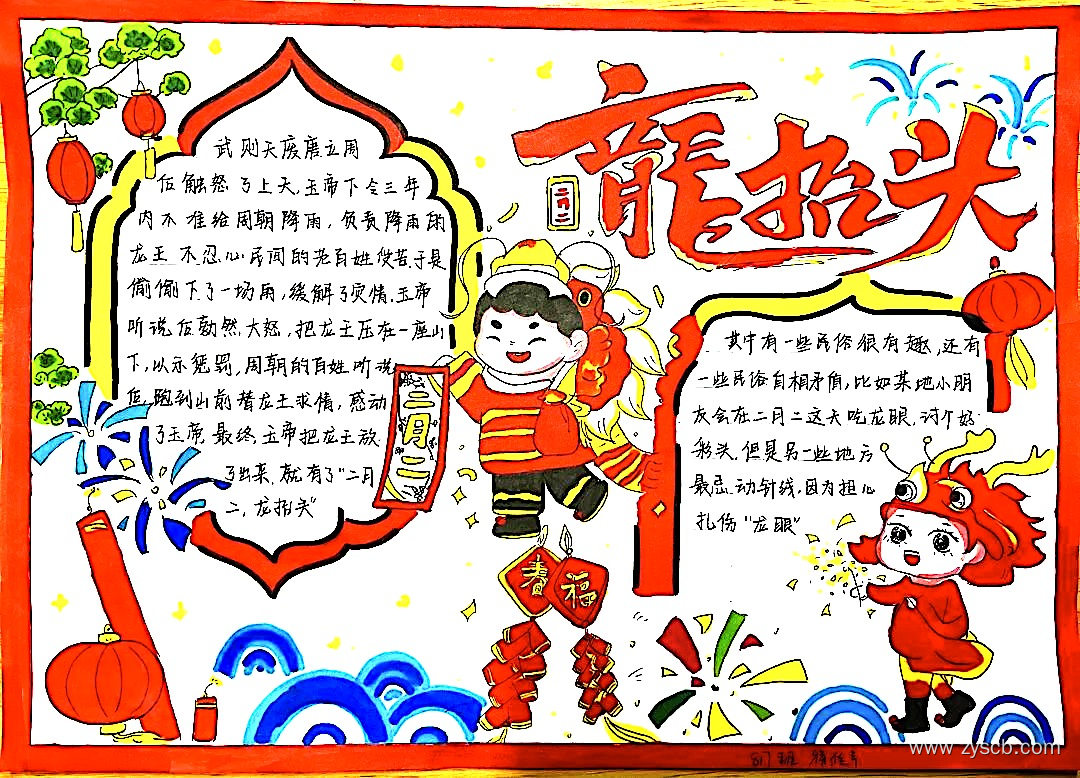 龍抬头
二月二
武则天废唐立周
后触怒了上天,玉帝下令三年
内不准给周朝降雨,负责降雨的
龙王不忍心民间的老百姓受苦于是
偷偷下了一场雨,缓解了灾情.玉帝
听说后勃然大怒,把龙王压在一座山
下,以示惩罚,周朝的百姓听说
后跑到山前替龙王求情,感动
了玉帝.最终玉帝把龙王放
了出来,就有了"二月
二,龙抬头"
二月二
其中有一些民俗很有趣,还有
一些民俗自相矛盾,比如某地小朋
友会在二月二这天吃龙眼,讨个好
彩头.但是另一些地方
最忌动针线,因为担心
扎伤"龙眼"
春
福
www.zyscb.com